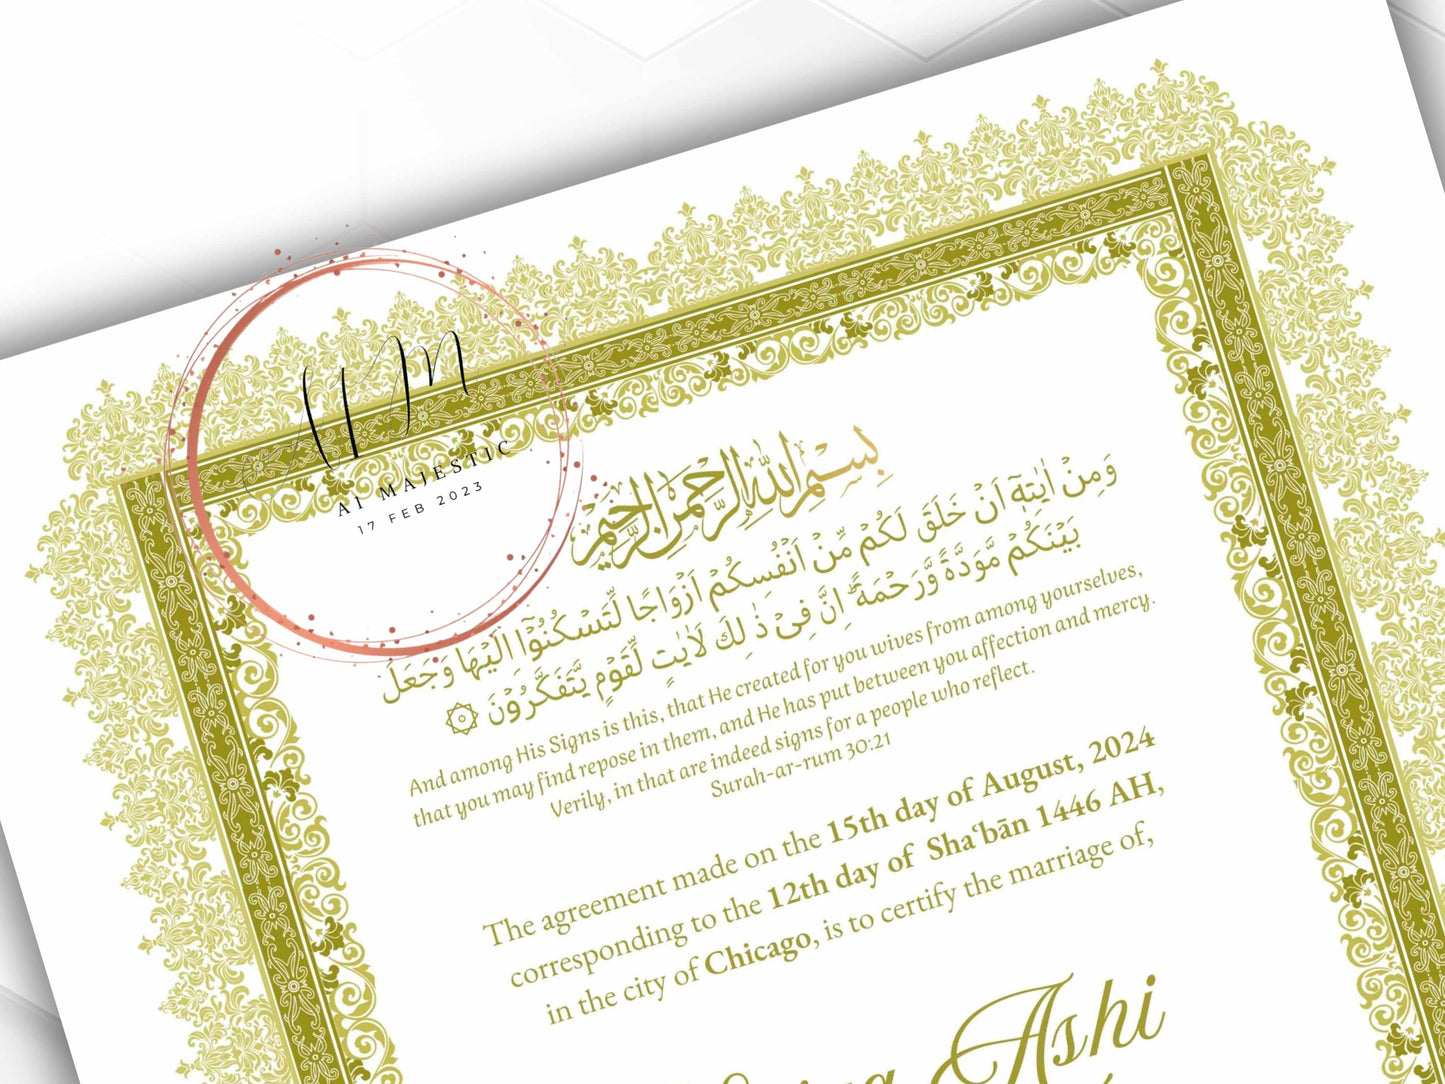 AM
AI MAJESTIC
17 FEB 2023
بِسْمِ اللهِ الرَّحْمٰنِ الرَّحِيْمِ
وَمِنْ اٰيٰتِهٖٓ اَنْ خَلَقَ لَكُمْ مِّنْ اَنْفُسِكُمْ اَزْوَاجًا لِّتَسْكُنُوْٓا اِلَيْهَا وَجَعَلَ
بَيْنَكُمْ مَّوَدَّةً وَّرَحْمَةً ۗ اِنَّ فِيْ ذٰلِكَ لَاٰيٰتٍ لِّقَوْمٍ يَّتَفَكَّرُوْنَ ۞
And among His Signs is this, that He created for you wives from among yourselves,
that you may find repose in them, and He has put between you affection and mercy.
Verily, in that are indeed signs for a people who reflect.
Surah-ar-rum 30:21
The agreement made on the 15th day of August, 2024
corresponding to the 12th day of Sha‘bān 1446 AH,
in the city of Chicago, is to certify the marriage of,
Ashi